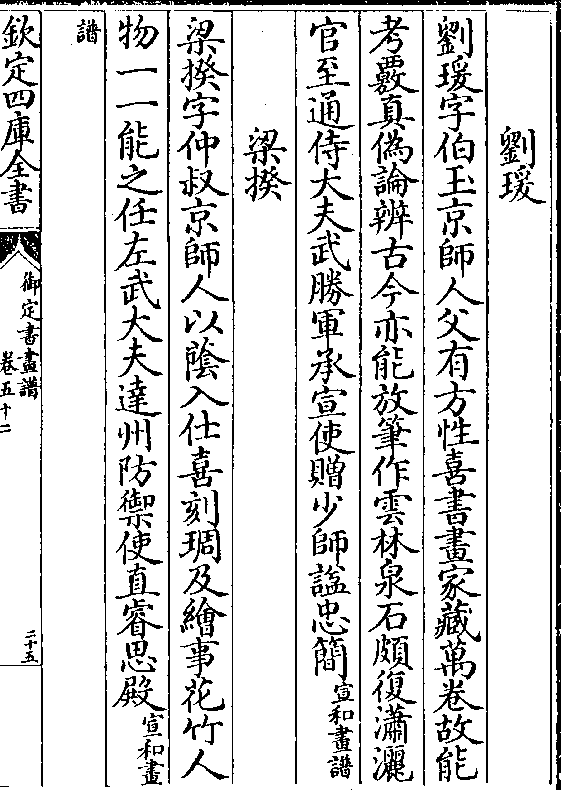 劉瑗
劉瑗字伯玉京師人父有方性喜書畫家藏萬卷故能
考覈真偽論辨古今亦能放筆作雲林泉石頗復瀟灑
官至通侍大夫武勝軍承宣使贈少師諡忠簡宣和畫譜
梁揆
梁揆字仲叔京師人以蔭入仕喜刻琱及繪事花竹人
物一一能之任左武大夫達州防禦使直睿思殿宣和畫
譜
欽定四庫全書
御定書畫譜
卷五十二
二十五